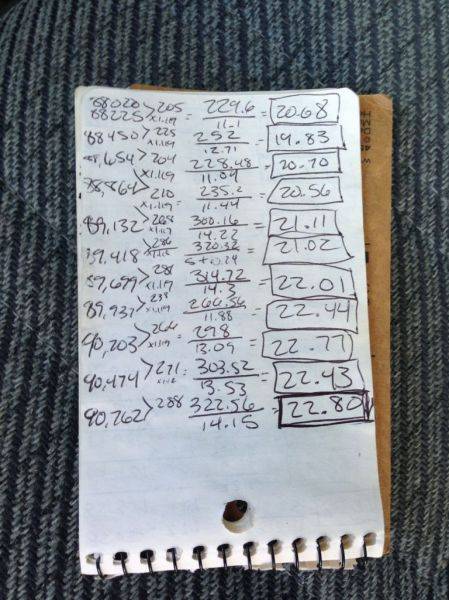 88020 > 205
88225 x1.119 = 229.6 / 11.1 = 20.68
88450 > 225 x1.119 = 252 / 12.71 = 19.83
88,654 > 204 x1.119 = 228.48 / 11.04 = 20.70
88,864 > 210 x1.119 = 235.2 / 11.44 = 20.56
89,132 > 268 x1.119 = 300.16 / 14.22 = 21.11
89,418 > 286 320.32 / = 21.02
89,699 > 281 x1.119 314.72 / 14.3 = 22.01
89,937 > 238 x1.119 266.56 / 11.88 = 22.44
90,203 > 266 = 298 / 13.09 = 22.77
90,474 > 271 x1.12 = 303.52 / 13.53 = 22.43
90,762 > 288 322.56 / 14.15 = 22.80